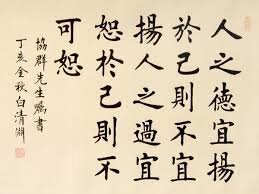 人之德宜揚
於己則不宜
揚人之過宜
恕於己則不
可恕
協群先生嘱書
丁亥金秋白清淵